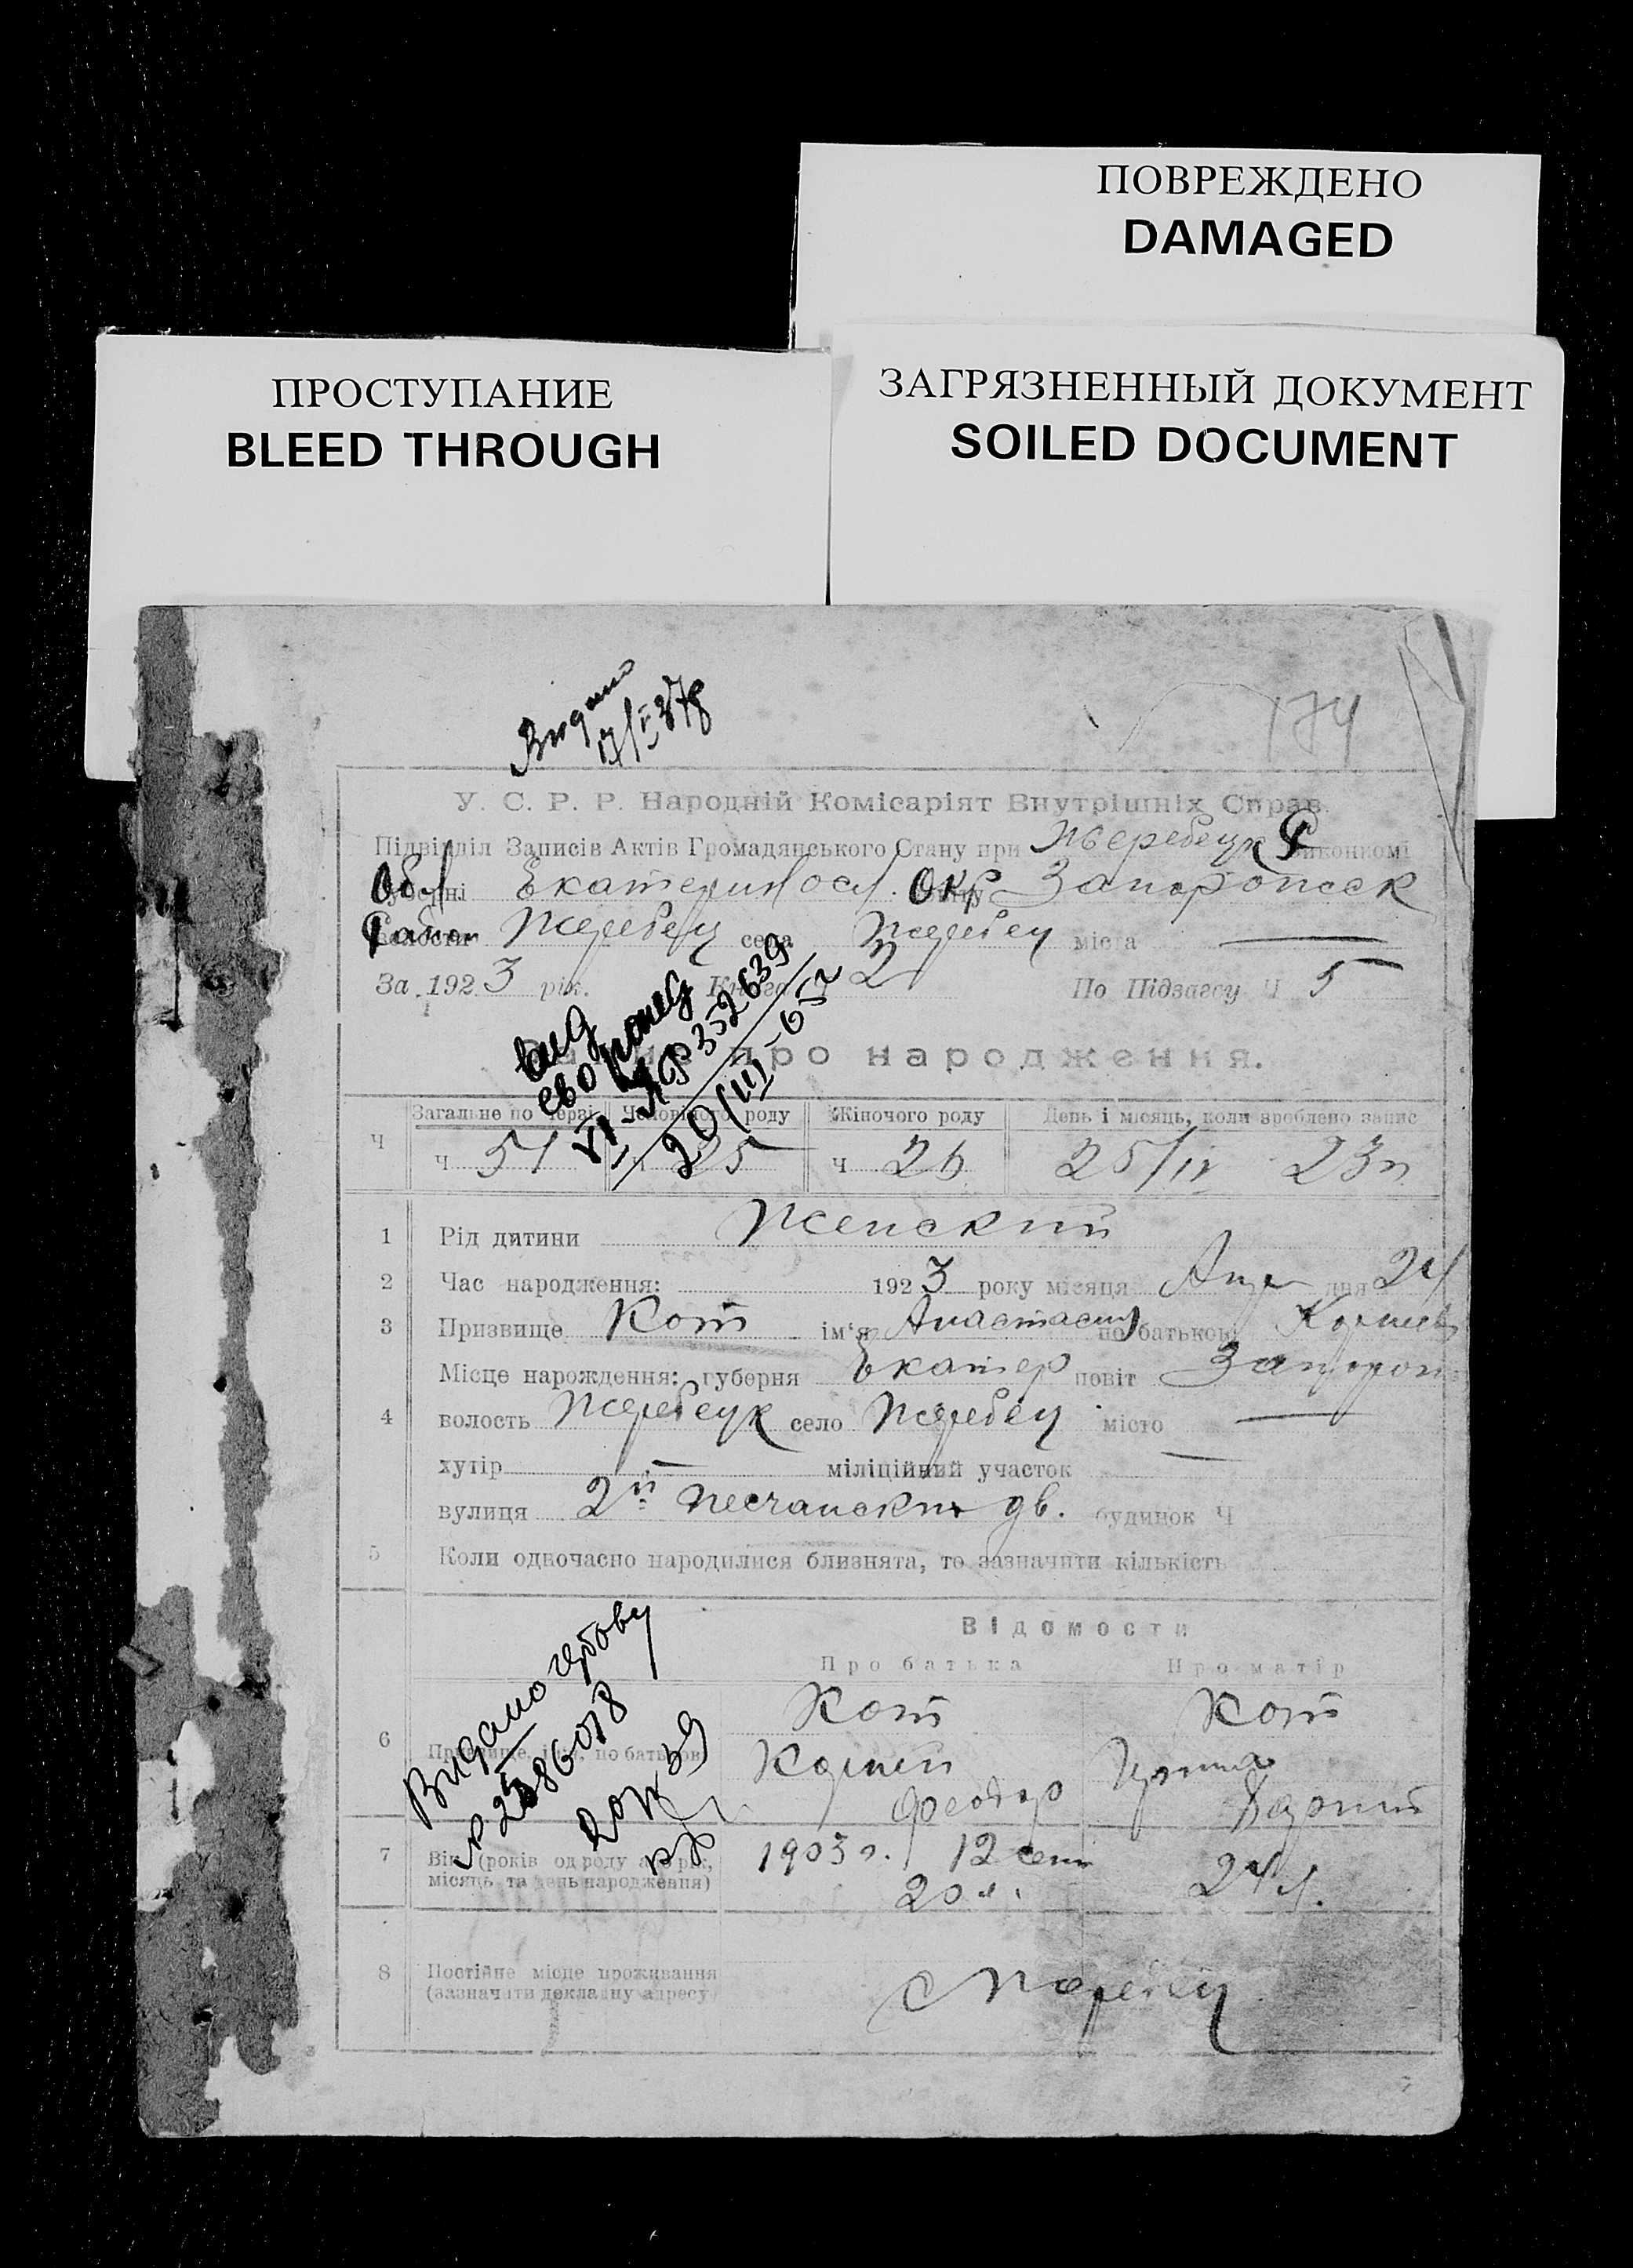 ПОВРЕЖДЕНО
DAMAGED
ПРОСТУПАНИЕ
BLEED THROUGH
ЗАГРЯЗНЕННЫЙ ДОКУМЕНТ
SOILED DOCUMENT
Видано
174
У. С. Р. Р. Народній Комісаріят Внутрішніх Справ.
Підвідділ Записів Актів Громадянського Стану при Жеребецк Р Виконкомі
Екатериносл. Окр Запорожск
Район Жеребец села Жеребец міста —
За 1923 рік. Книга Ч 2 По Підзагсу Ч 5
вид
про народження.
ЯР 352639
Загальне по черзі Чоловічого роду Жіночого роду День і місяць, коли зроблено запис
Ч Ч 51 25 Ч 26 25/IV 23г
1 Рід дитини Женский
2 Час народження: 1923 року місяця Апр дня 24
3 Призвище Кот ім'я Анастасия по батькові Корнеев
Місце народження: губерня Екатер повіт Запорож
4 волость Жеребецк село Жеребец місто —
хутір — міліційний участок —
вулиця 2й Песчанский дв. будинок Ч
5 Коли одночасно народилися близнята, то зазначити кількість
Відомости
Про батька Про матір
Видано гербову
№ 2586018
6 Призвище, ім'я, по батькові Кот Кот
Корней
Феодор
7 Вік (років од роду або рік, 1903 г. 12 сен 24 л.
місяць та день народження) 20 л.
8 Постійне місце проживання
(зазначити докладну адресу) С Жеребец